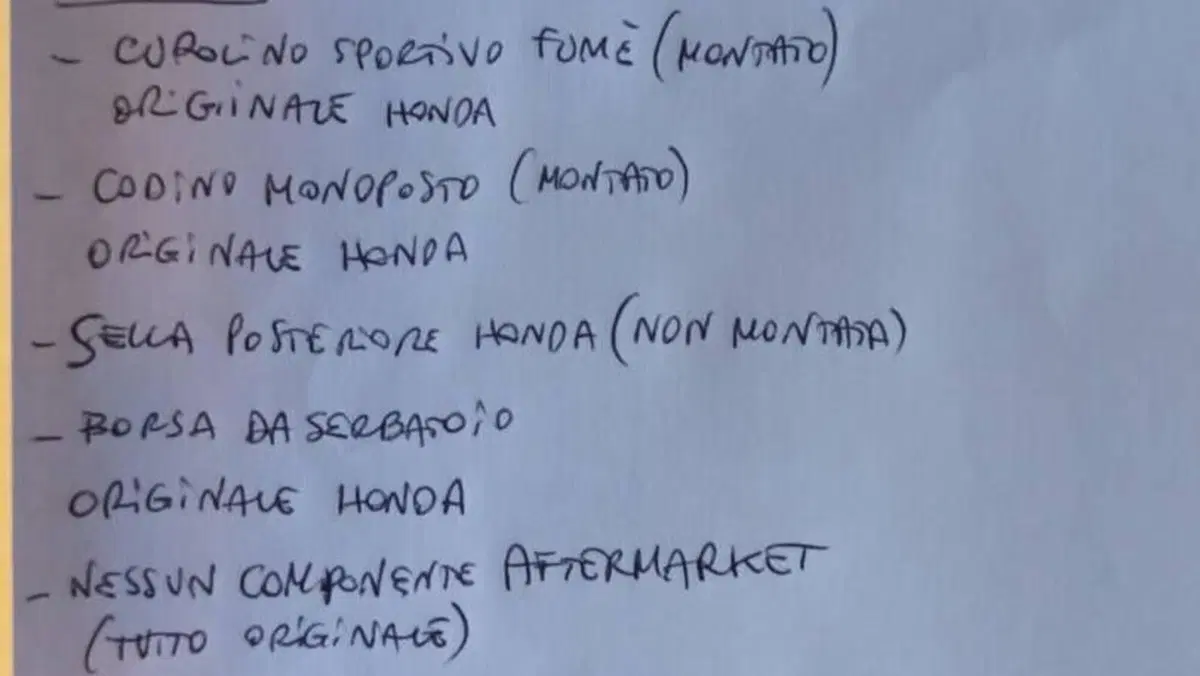 - CUPOLINO SPORTIVO FUMÈ (MONTATO)
ORIGINALE HONDA
- CODINO MONOPOSTO (MONTATO)
ORIGINALE HONDA
- SELLA POSTERIORE HONDA (NON MONTATA)
- BORSA DA SERBATOIO
ORIGINALE HONDA
- NESSUN COMPONENTE AFTERMARKET
(TUTTO ORIGINALE)